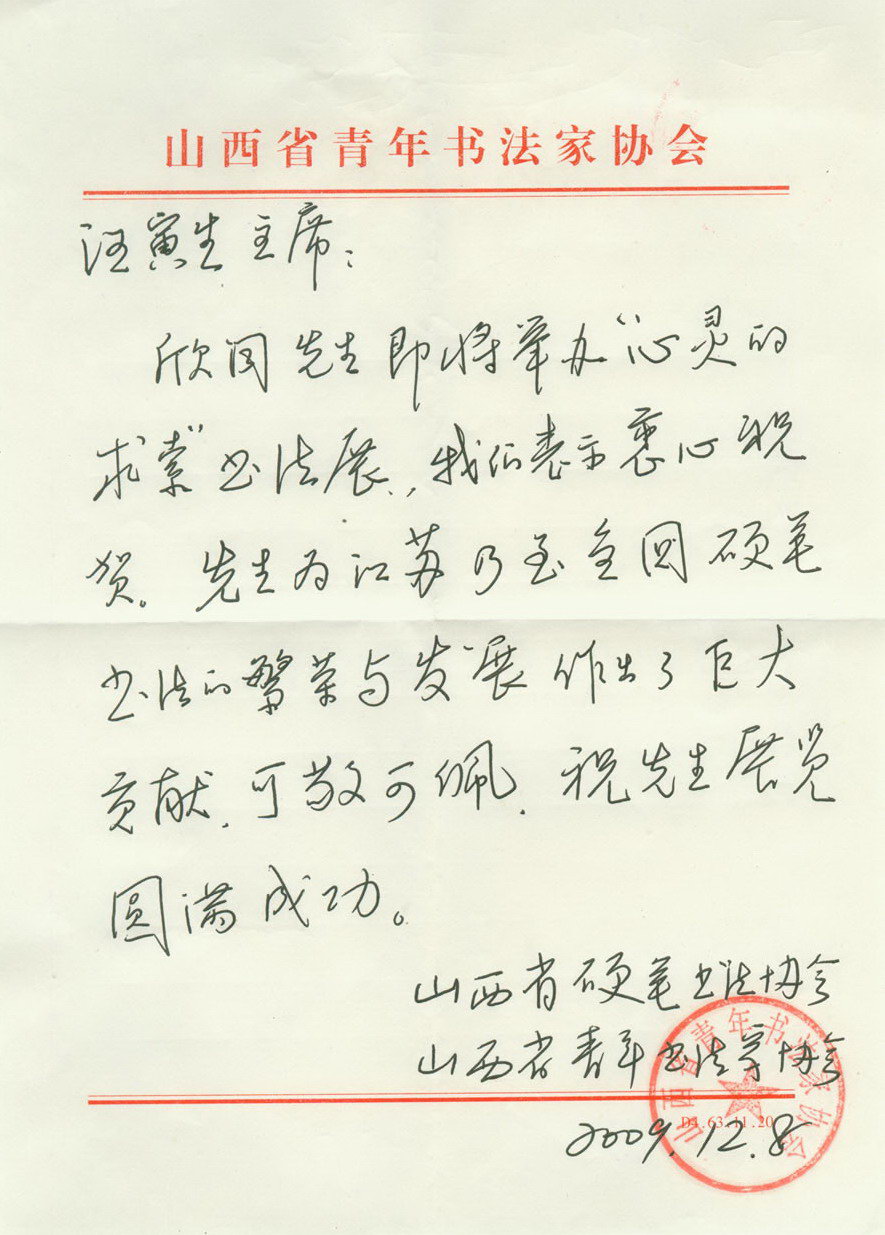 山西省青年书法家协会
汪寅生主席：
欣闻先生即将举办“心灵的
求索”书法展，我们表示衷心祝
贺。先生为江苏乃至全国硬笔
书法的繁荣与发展作出了巨大
贡献，可敬可佩，祝先生展览
圆满成功。
山西省硬笔书法协会
山西省青年书法家协会
2009.12.8
山西省青年书法家协会
04.63.11.20